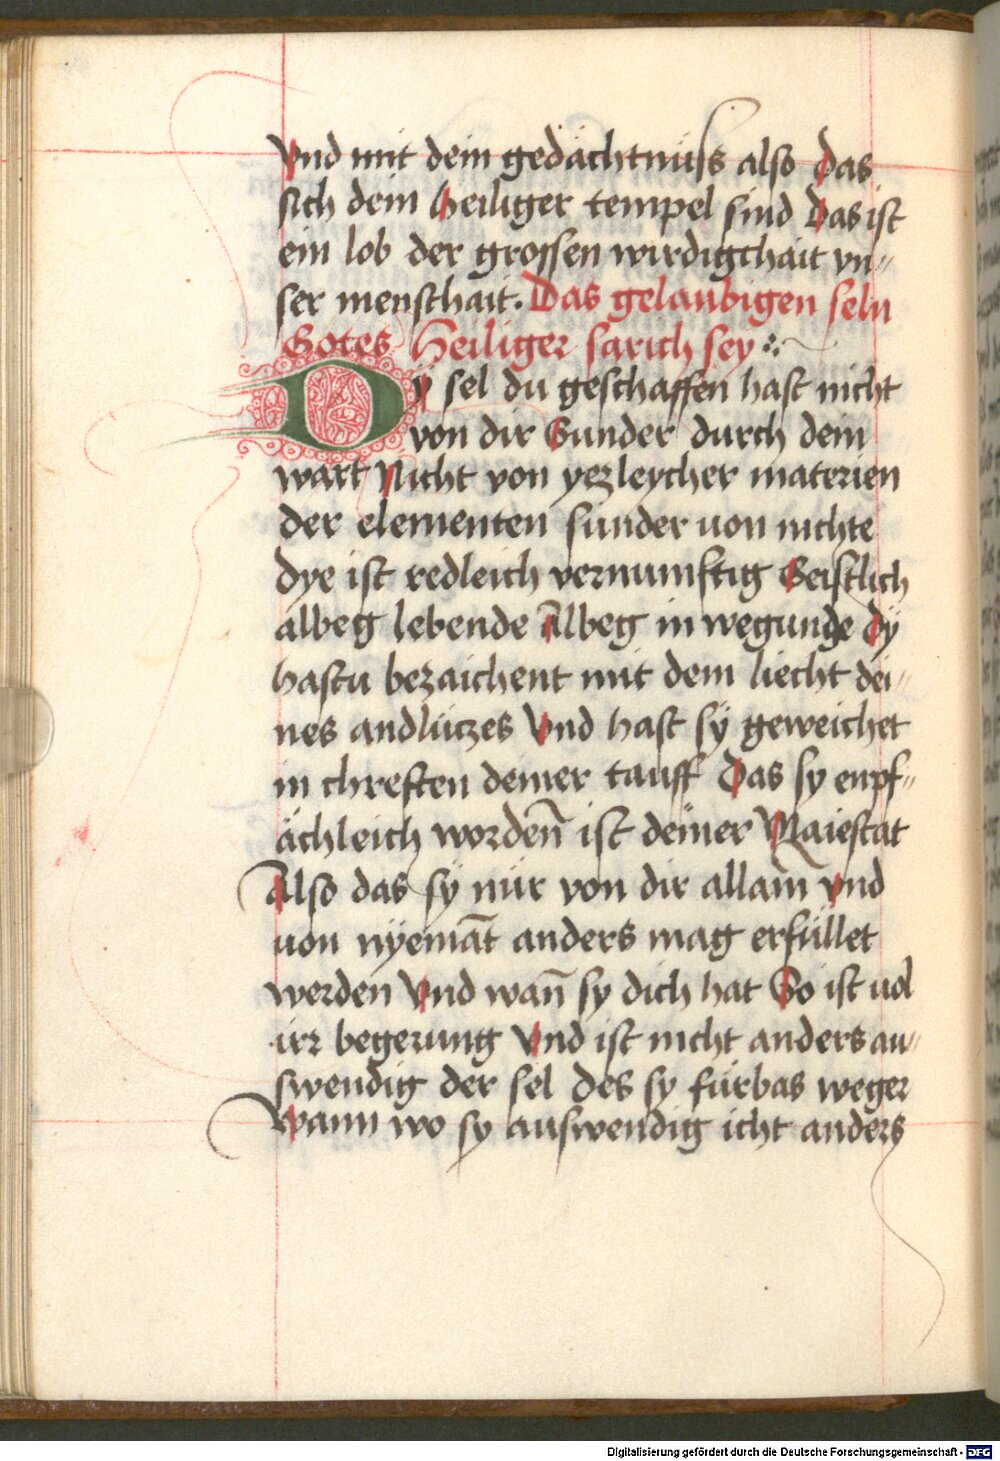 Vnd mit dein gedächtnüss also das
sich dein heiliger tempel sind Das ist
ein lob der grossen wirdigchait vn„
ser menschait. Das gelaubigen seln
Gotes Heiliger sarich sey
Dÿ sel du geschaffen hast nicht
von dir Sunder durch dein
wart Nicht von yezleycher materien
der elementen sunder uon nichte
dye ist redleich vernumftig Geistlich
albeg lebende Albeg in wegunde dÿ
hastu bezaichent mit dem liecht dei„
nes andlützes Vnd hast sÿ geweichet
in chreften deiner tauff Das sy enpf„
ächleich wordeñ ist deiner Maiestat
Also das sÿ nür von dir allaiñ vnd
uon nÿemāt anders mag erfüllet
werden Vnd wañ sy dich hat So ist uol
irr begerung Vnd ist nicht anders au„
swendig der sel des sy fürbas weger
Wann wo sy auswendig icht anders
Digitalisierung gefördert durch die Deutsche Forschungsgemeinschaft - DFG